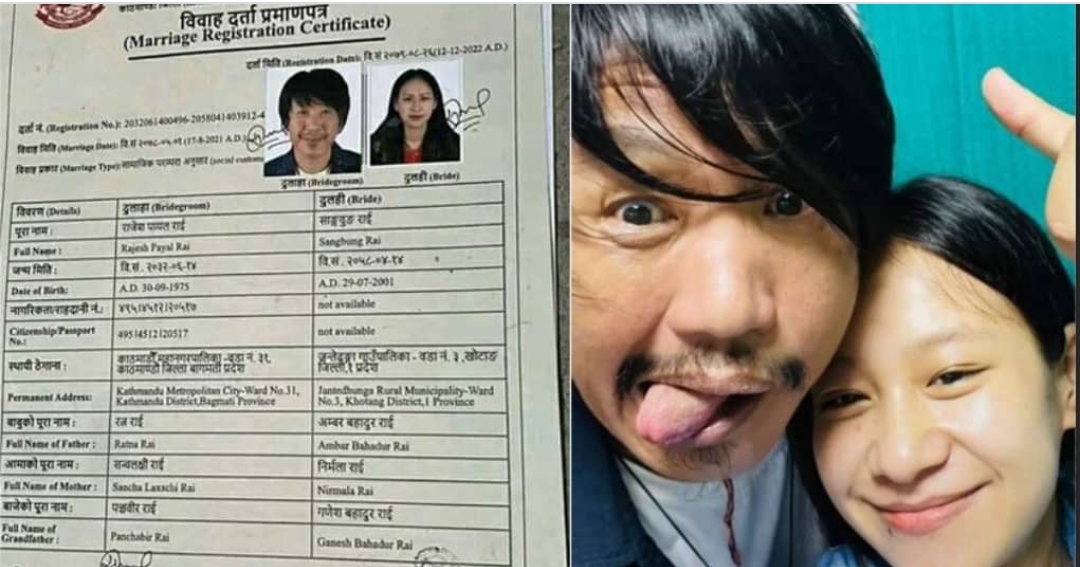 विवाह दर्ता प्रमाणपत्र
(Marriage Registration Certificate)
दर्ता मिति (Registration Date): वि.सं २०७९-०८-२६(12-12-2022 A.D.)
दर्ता नं. (Registration No.): 2032061400496-2058041403912-4
विवाह मिति (Marriage Date): वि.सं २०७८-०५-०१ (17-8-2021 A.D.)
विवाह प्रकार (Marriage Type): सामाजिक परम्परा अनुसार (social
दुलाहा (Bridegroom) दुलही (Bride)
विवरण (Details) दुलाहा (Bridegroom) दुलही (Bride)
पूरा नाम : राजेश पायल राई साङ्गबुङ राई
Full Name : Rajesh Payal Rai Sangbung Rai
जन्म मिति : वि.सं. २०३२-०६-१४ वि.सं. २०५८-०४-१४
Date of Birth: A.D. 30-09-1975 A.D. 29-07-2001
नागरिकता/राहदानी नं.: not available
Citizenship/Passport 49514512120517 not available
No.:
स्थायी ठेगाना : काठमाडौँ महानगरपालिका - वडा नं. ३१, जन्तेढुङ्गा गाउँपालिका - वडा नं. ३ ,खोटाङ
काठमाण्डौ जिल्ला बागमती प्रदेश जिल्ला,१ प्रदेश
Permanent Address: Kathmandu Metropolitan City-Ward No.31, Jantedhunga Rural Municipality-Ward
Kathmandu District,Bagmati Province No.3, Khotang District,1 Province
बाबुको पूरा नाम : रत्न राई अम्बर बहादुर राई
Full Name of Father : Ratna Rai Ambar Bahadur Rai
आमाको पूरा नाम : राई निर्मला राई
Full Name of Mother : Sancha Laxschi Rai Nirmala Rai
बाजेको पूरा नाम : पञ्चवीर राई गणेश बहादुर राई
Full Name of Panchabir Rai Ganesh Bahadur Rai
Grandfather :